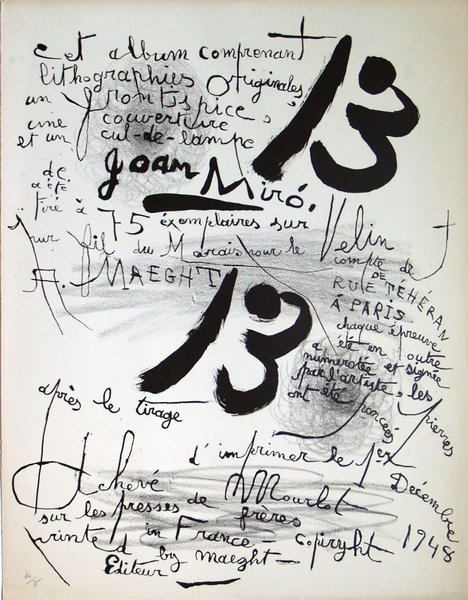 cet album comprenant 13
lithographies originales,
un frontispice,
une couverture
et un cul-de-lampe
de Joan Miró.
a été
tiré à 75 exemplaires sur Velin
pur fil du Marais pour le compte de
A. MAEGHT 13 RUE DE TÉHÉRAN
À PARIS
chaque épreuve
a été en outre
numerotée et signée
par l'artiste, les pierres
ont été poncées
après le tirage
Achevé d'imprimer le 1er Décembre 1948
sur les presses de Mourlot
frères
printed in France - copyright
by maeght -
Editeur